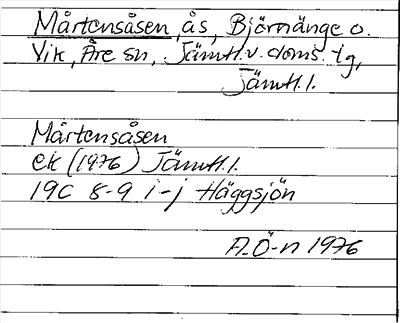 Mårtensåsen, ås, Björnänge o.
Vik, Åre sn, Jämtl. v. doms. tg,
Jämtl. l.
Mårtensåsen
ek (1976) Jämtl. l.
19C 8-9 i-j Häggsjön
A.Ö-n 1976